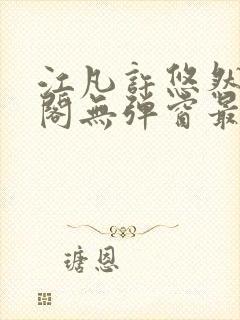 江凡許悠然
閣無彈窗最
瑭恩